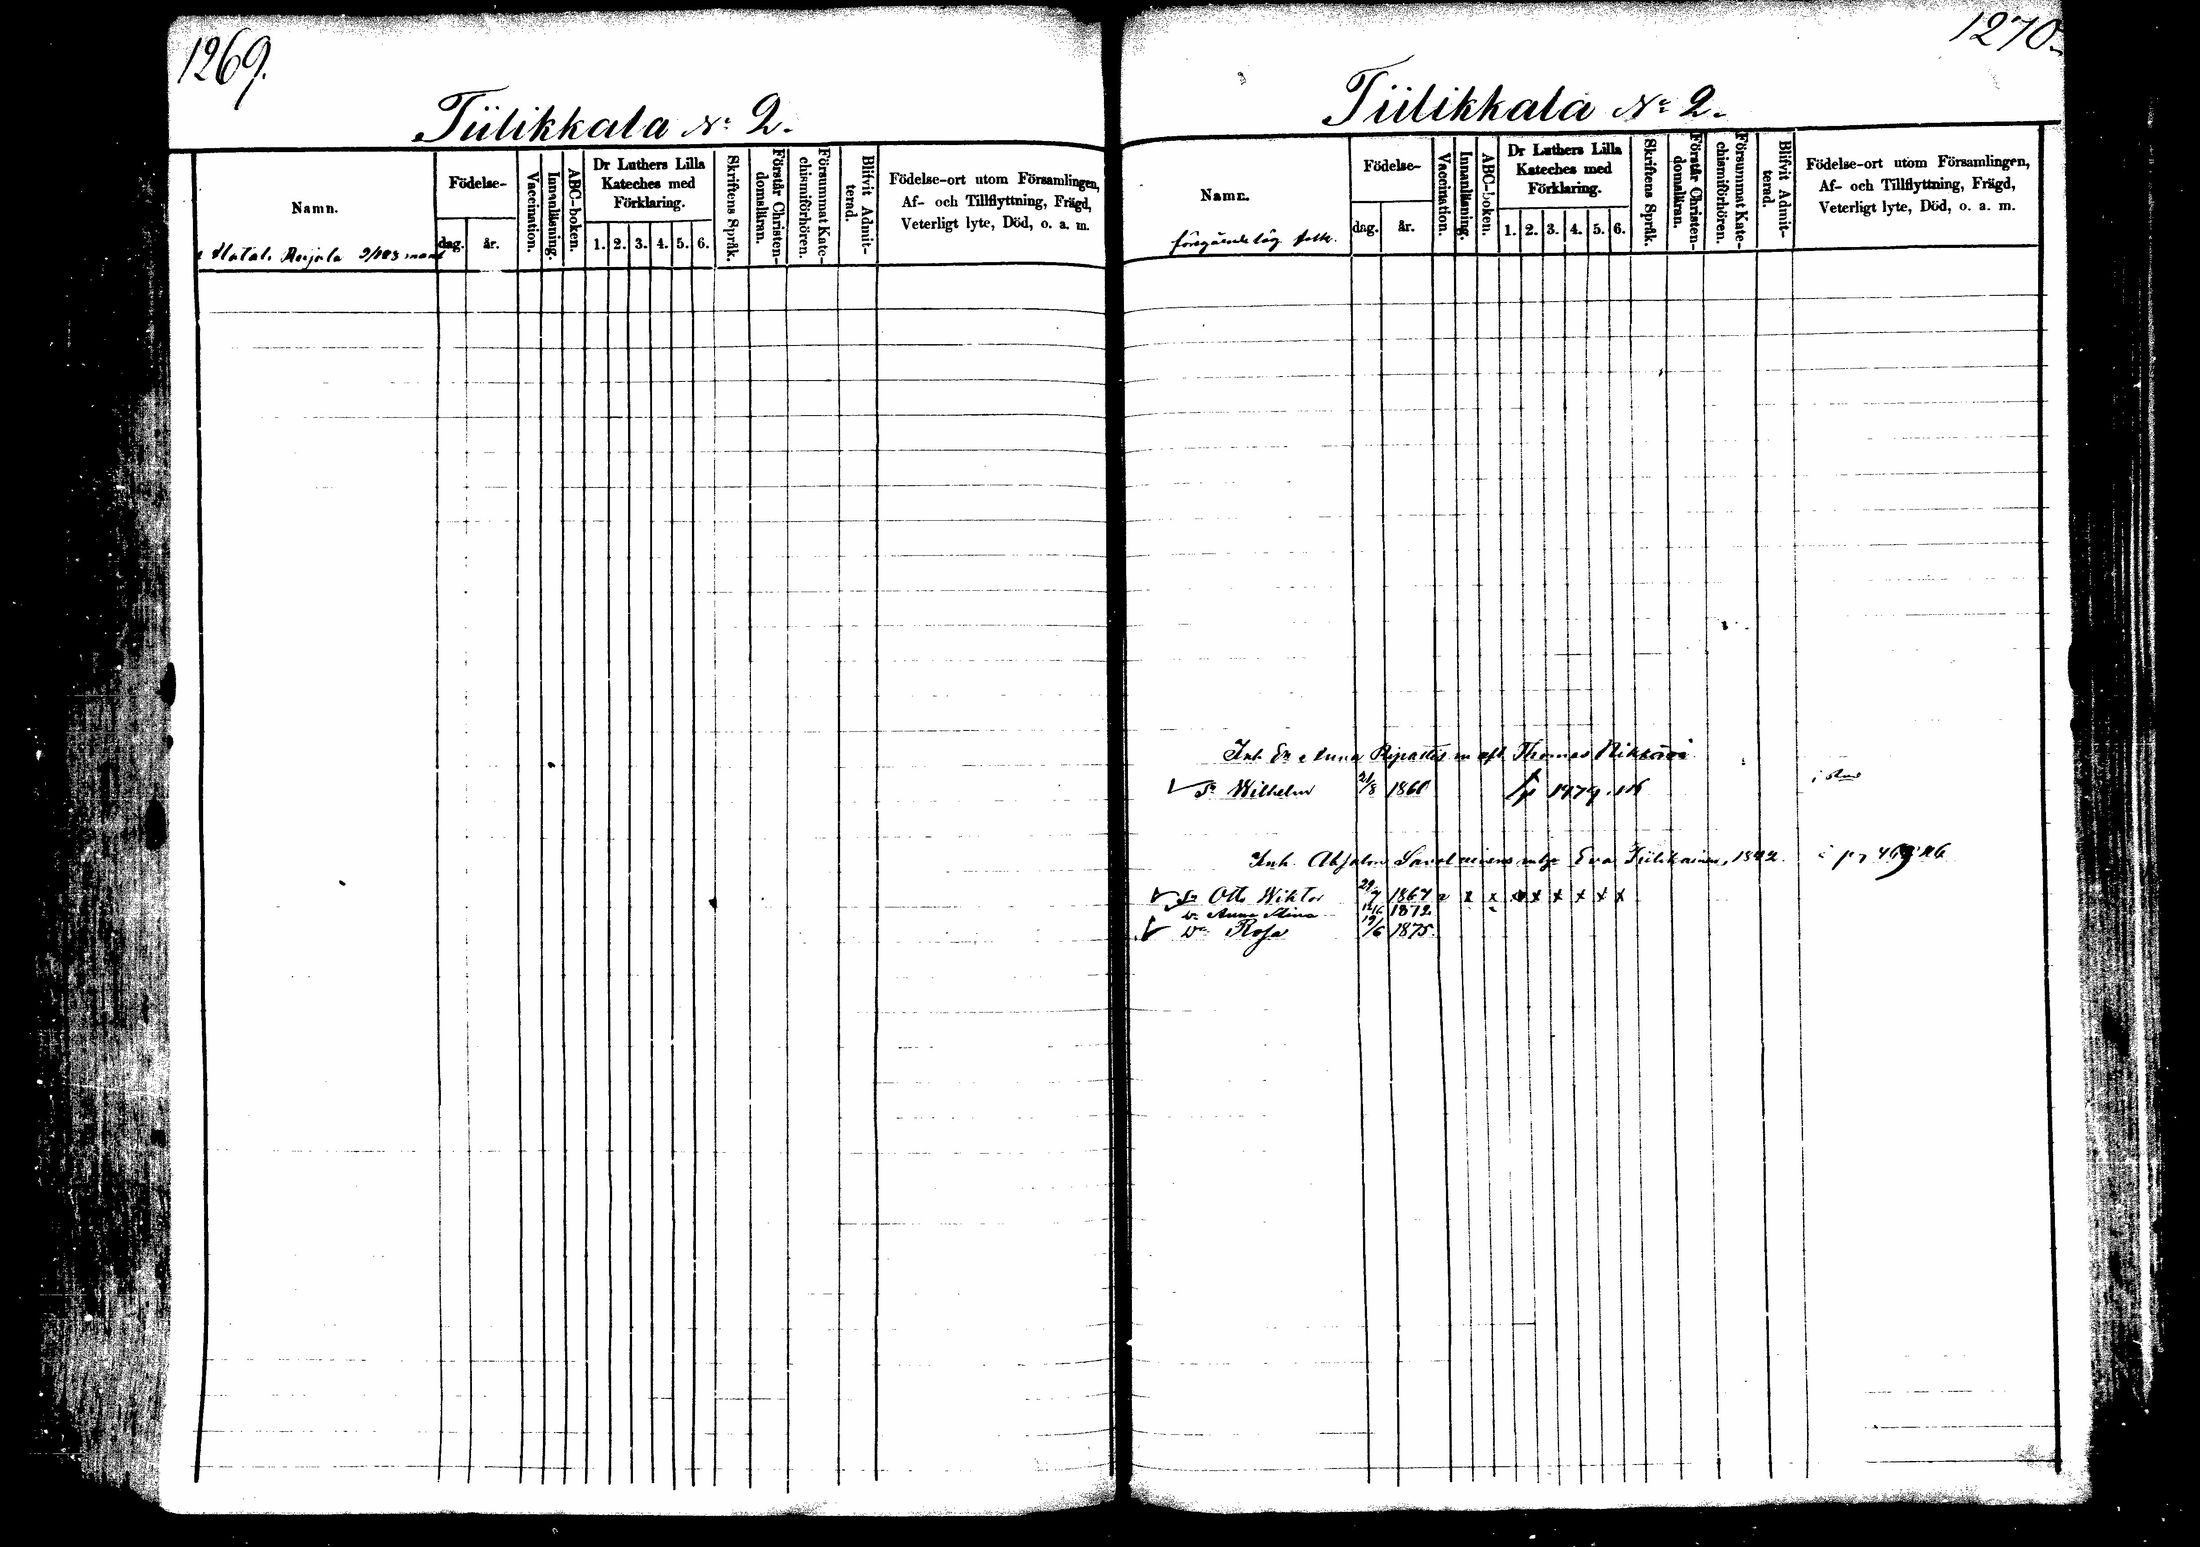 1269.
Tiilikkala No 2.
Namn.
Födelse-
dag.
år.
Vaccination.
Innanläsning.
ABC-boken.
Dr Luthers Lilla
Kateches med
Förklaring.
1. 2. 3. 4. 5. 6.
Skriftens Språk.
Förstår Christen-
domsläran.
Försummat Kate-
chismiförhören.
Blifvit Admit-
terad.
Födelse-ort utom Församlingen,
Af- och Tillflyttning, Frägd,
Veterligt lyte, Död, o. a. m.
1270.
Tiilikkala No 2.
Namn.
föregående läg. folk.
Födelse-
dag.
år.
Vaccination.
Innanläsning.
ABC-boken.
Dr Luthers Lilla
Kateches med
Förklaring.
1. 2. 3. 4. 5. 6.
Skriftens Språk.
Förstår Christen-
domsläran.
Försummat Kate-
chismiförhören.
Blifvit Admit-
terad.
Födelse-ort utom Församlingen,
Af- och Tillflyttning, Frägd,
Veterligt lyte, Död, o. a. m.
Inh. Anna Thomas
Sn Wilhelm 21/8 1860
Inh. Eva Tiilikainen, 1842
Sn Otto Wiktor 1867 x x x x x x x
Dr Anna Stina 1872
Dr Rosa 19/6 1875.